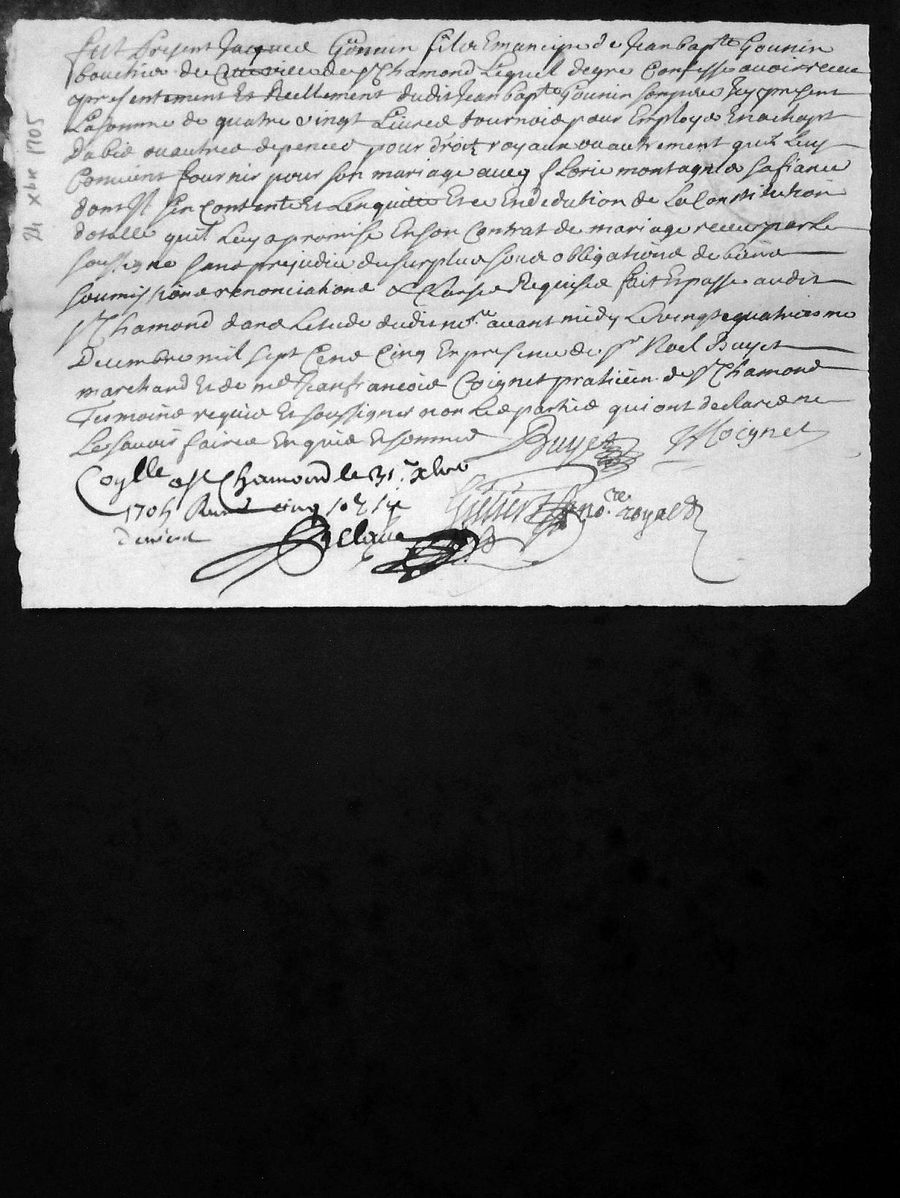 24 xbre 1705
fut present Jacques Gounin fils Emancipe de Jean bapte Gounin
bouchier de de St Chamond Lequel de gre Confesse avoir receu
presentement Et Reellement dudit Jean bapte Gounin son pere Icy present
La somme de quatre vingt Livres tournois pour Employe En achapt
dabis ou autres depences pour droitz royaux ou autrement quil Luy
Convient fournir pour son mariage avecq fLorie montagne sa fiance
dont Il sen Contente Et Len quitte Et ce En dedution de La Constitution
dotalle quil Luy a promise En son Contrat de mariage receu par Le
soussigne sans prejudice du surplus sous obligations de biens
soumissions renonciations & Clauses Requises fait Et passe audit
St Chamond dans Letude dudit nore avant midy Le vingt quatriesme
Decembre mil sept Cens Cinq En presence de Sr Noel Buyet
marchand Et de me Jean francois Coignet praticien de St Chamond
Tesmoins requis Et soussignes non Les parties qui ont declare ne
Le savoir faire Enquis Et sommes Buyet Coignet
Colle a St Chamond le 31e xbre
1705 Receu cinq sols
nore royal